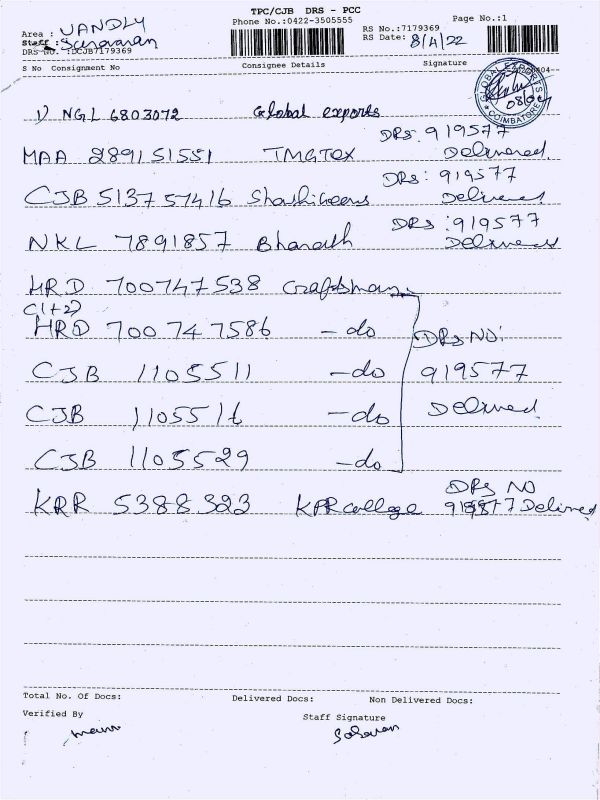 TPC/CJB DRS - PCC
Phone No.:0422-3505555
Page No.:1
Area : VANDLY
RS No.:7179369
Staff : Saravanan
RS Date: 8/4/22
DRS No. :DCJB7179369
S No Consignment No Consignee Details Signature
GLOBAL EXPORTS
COIMBATORE
1) NGL 6803072 Global exports
DRS: 919577
MAA 289151551 TMGTEX Delivered
DRS: 919577
CJB 513757416 Delivered
DRS: 919577
NKL 7891857 Bharath Delivered
HRD 700747538 Craftsman
C(1+2)
HRD 700747586 - do
DRS NO:
CJB 1105511 - do 919577
CJB 1105516 - do Delivered
CJB 1105529 - do
DRS NO
KRR 5388323 KPR college 919577 Delivered
Total No. Of Docs: Delivered Docs: Non Delivered Docs:
Verified By Staff Signature